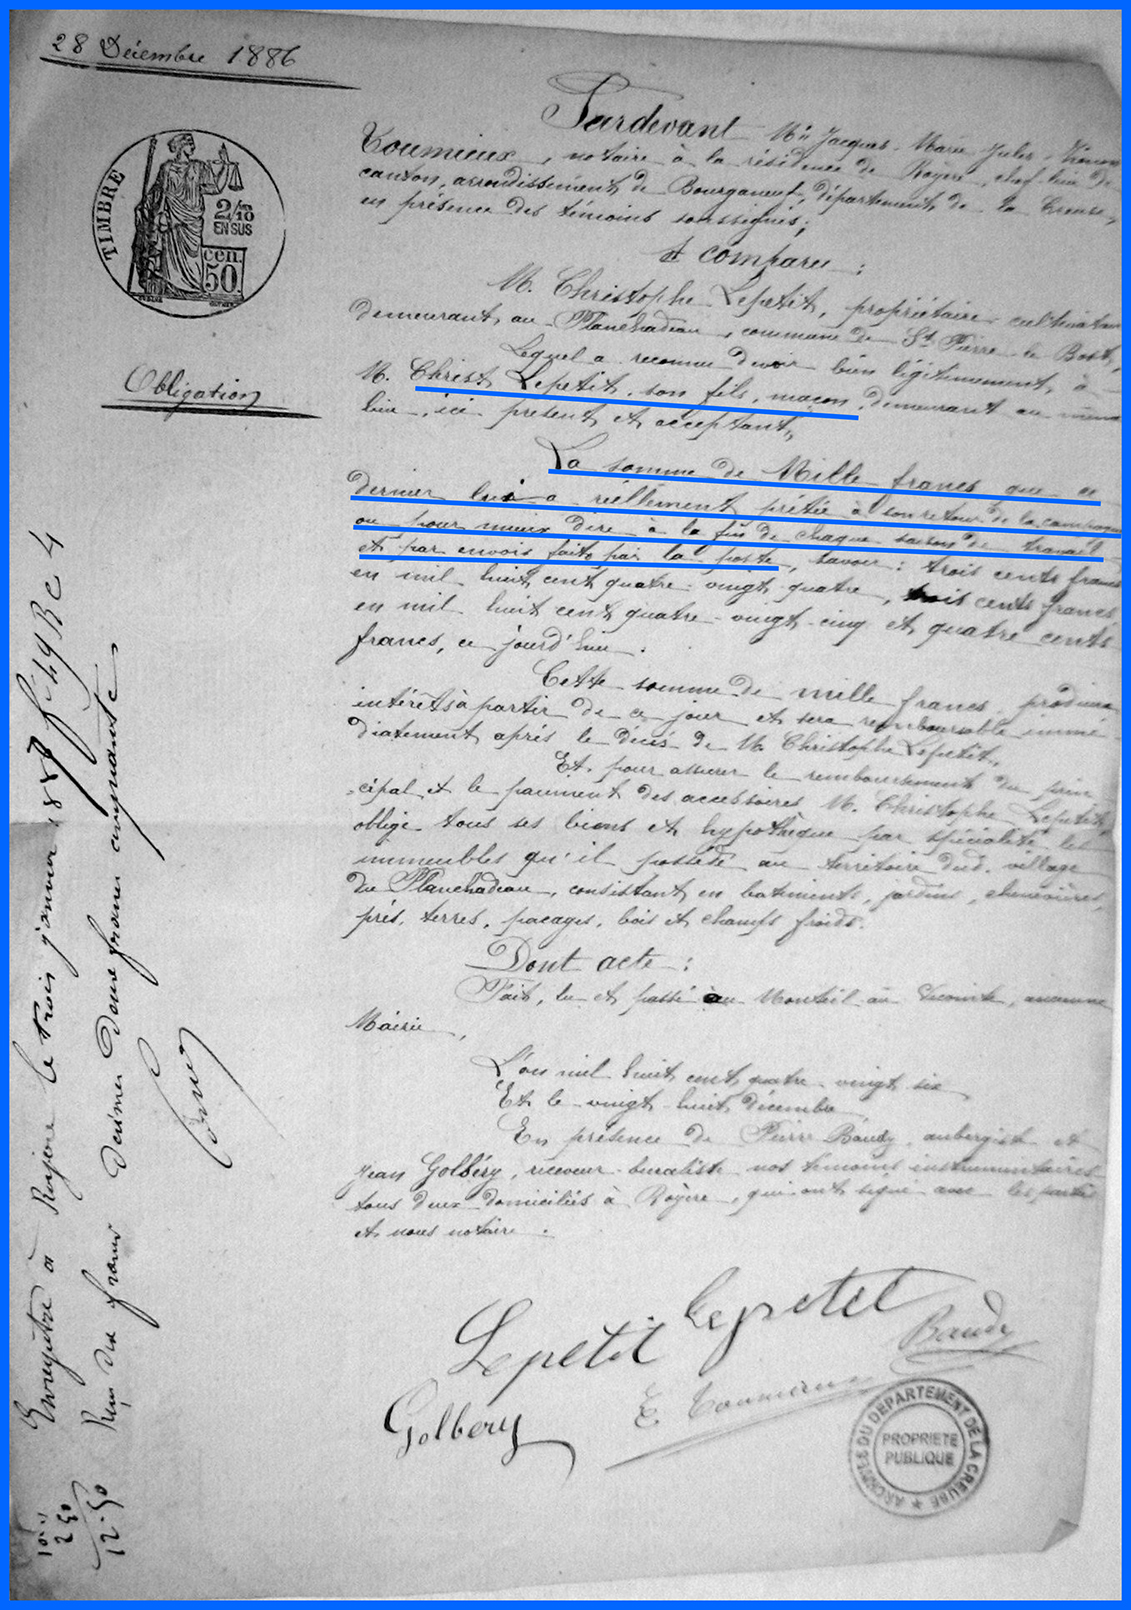 28 Décembre 1886
TIMBRE
2/10
EN SUS
CEN.
50
Obligation
Pardevant Me Jacques Marie Jules
Toumieux, notaire à la résidence de Royère, chef lieu de
canton, arrondissement de Bourganeuf, département de la Creuse,
en présence des témoins soussignés;
A comparu :
M. Christophe Lepetit, propriétaire cultivateur
demeurant au Planchadeau, commune de St Pierre le Bost,
Lequel a reconnu devoir bien légitimement à
M. Christ Lepetit, son fils, maçon, demeurant au même
lieu, ici présent et acceptant,
La somme de Mille francs que ce
dernier lui a réellement prêtée à son retour de la campagne
ou pour mieux dire à la fin de chaque saison de travail
et par envois faits par la poste, savoir : trois cents francs
en mil huit cent quatre-vingt quatre, trois cents francs
en mil huit cent quatre-vingt-cinq et quatre cents
francs, ce jourd'hui.
Cette somme de mille francs produira
intérêts à partir de ce jour et sera remboursable immé
diatement après le décès de M. Christophe Lepetit.
Et pour assurer le remboursement du prin
cipal et le paiement des accessoires, M. Christophe Lepetit
oblige tous ses biens et hypothèque par spécialité les
immeubles qu'il possède au territoire dud. village
du Planchadeau, consistant en batiments, jardins, chenevières,
prés, terres, pacages, bois et champs froids.
Dont acte :
Fait, lu et passé au Monteil au Vicomte, ancienne
Mairie,
L'an mil huit cent quatre-vingt six
Et le vingt-huit décembre
En présence de Pierre Baudy, aubergiste et
Jean Golbéry, receveur-buraliste nos témoins instrumentaires
tous deux domiciliés à Royère, qui ont signé avec les parties
et nous notaire.
Lepetit
Lepetit
Baudy
Golbery
E. Toumieux
ARCHIVES DU DEPARTEMENT DE LA CREUSE
PROPRIETE
PUBLIQUE
Enregistré à Royère le trois janvier 1887 f° 49 R C 4
Reçu dix francs décimes deux francs cinquante
10 "
2 50
12.50